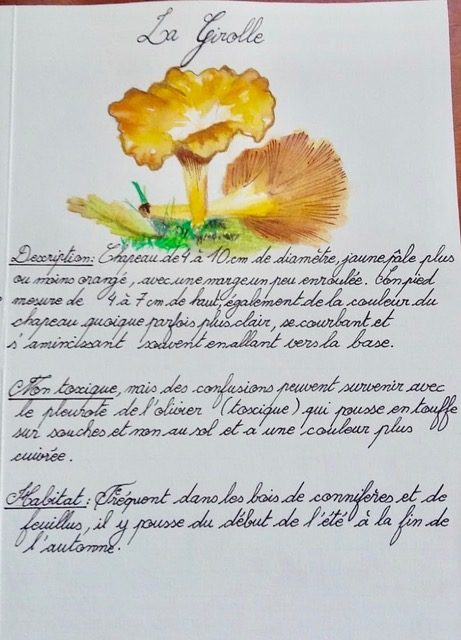 La Girolle
Description: Chapeau de 4 à 10 cm de diamètre, jaune pâle plus
ou moins orangé, avec une marge un peu enroulée. Son pied
mesure de 4 à 7 cm de haut, également de la couleur du
chapeau quoique parfois plus clair, se courbant et
s'amincissant souvent en allant vers la base.
Non toxique, mais des confusions peuvent survenir avec
le pleurote de l'olivier (toxique) qui pousse en touffe
sur souches et non au sol et a une couleur plus
cuivrée.
Habitat: Fréquent dans les bois de connifères et de
feuillus, il y pousse du début de l'été à la fin de
l'automne.